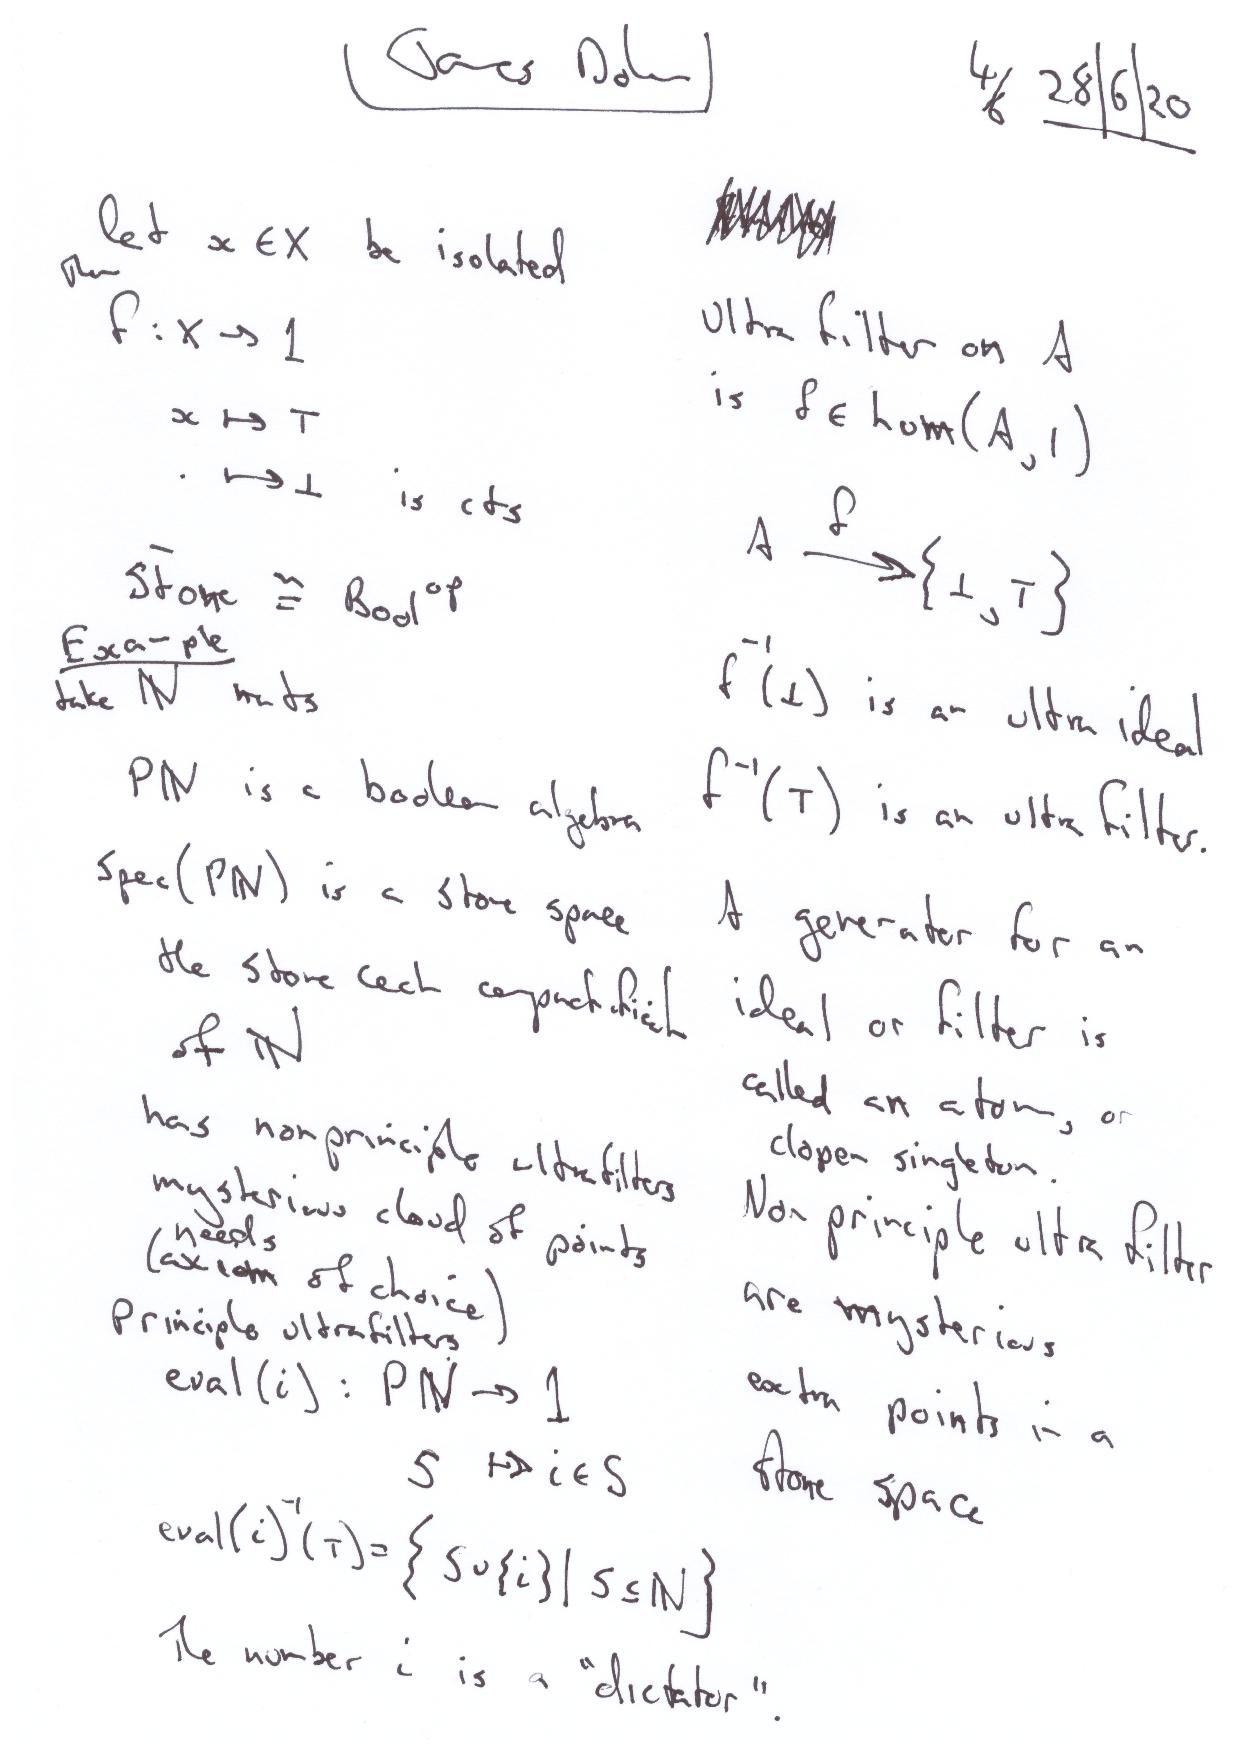 James Dolan
4/6 28/6/20
let x ∈ X be isolated
then
f : X → 1
x ↦ ⊤
· ↦ ⊥ is cts
Stone ≅ Bool^op
Example
take ℕ nats
Pℕ is a boolean algebra
Spec(Pℕ) is a stone space
the stone cech compactification
of ℕ
has nonprinciple ultrafilters
mysterious cloud of points
(needs
axiom of choice)
Principle ultrafilters
eval(i) : Pℕ → 1
S ↦ i ∈ S
eval(i)⁻¹(⊤) = { S ∪ {i} | S ⊆ ℕ }
The number i is a "dictator".
Ultra filter on A
is f ∈ hom(A, 1)
A →f {⊥, ⊤}
f⁻¹(⊥) is an ultra ideal
f⁻¹(⊤) is an ultra filter.
A generator for an
ideal or filter is
called an atom, or
clopen singleton.
Non principle ultra filter
are mysterious
extra points in a
stone space